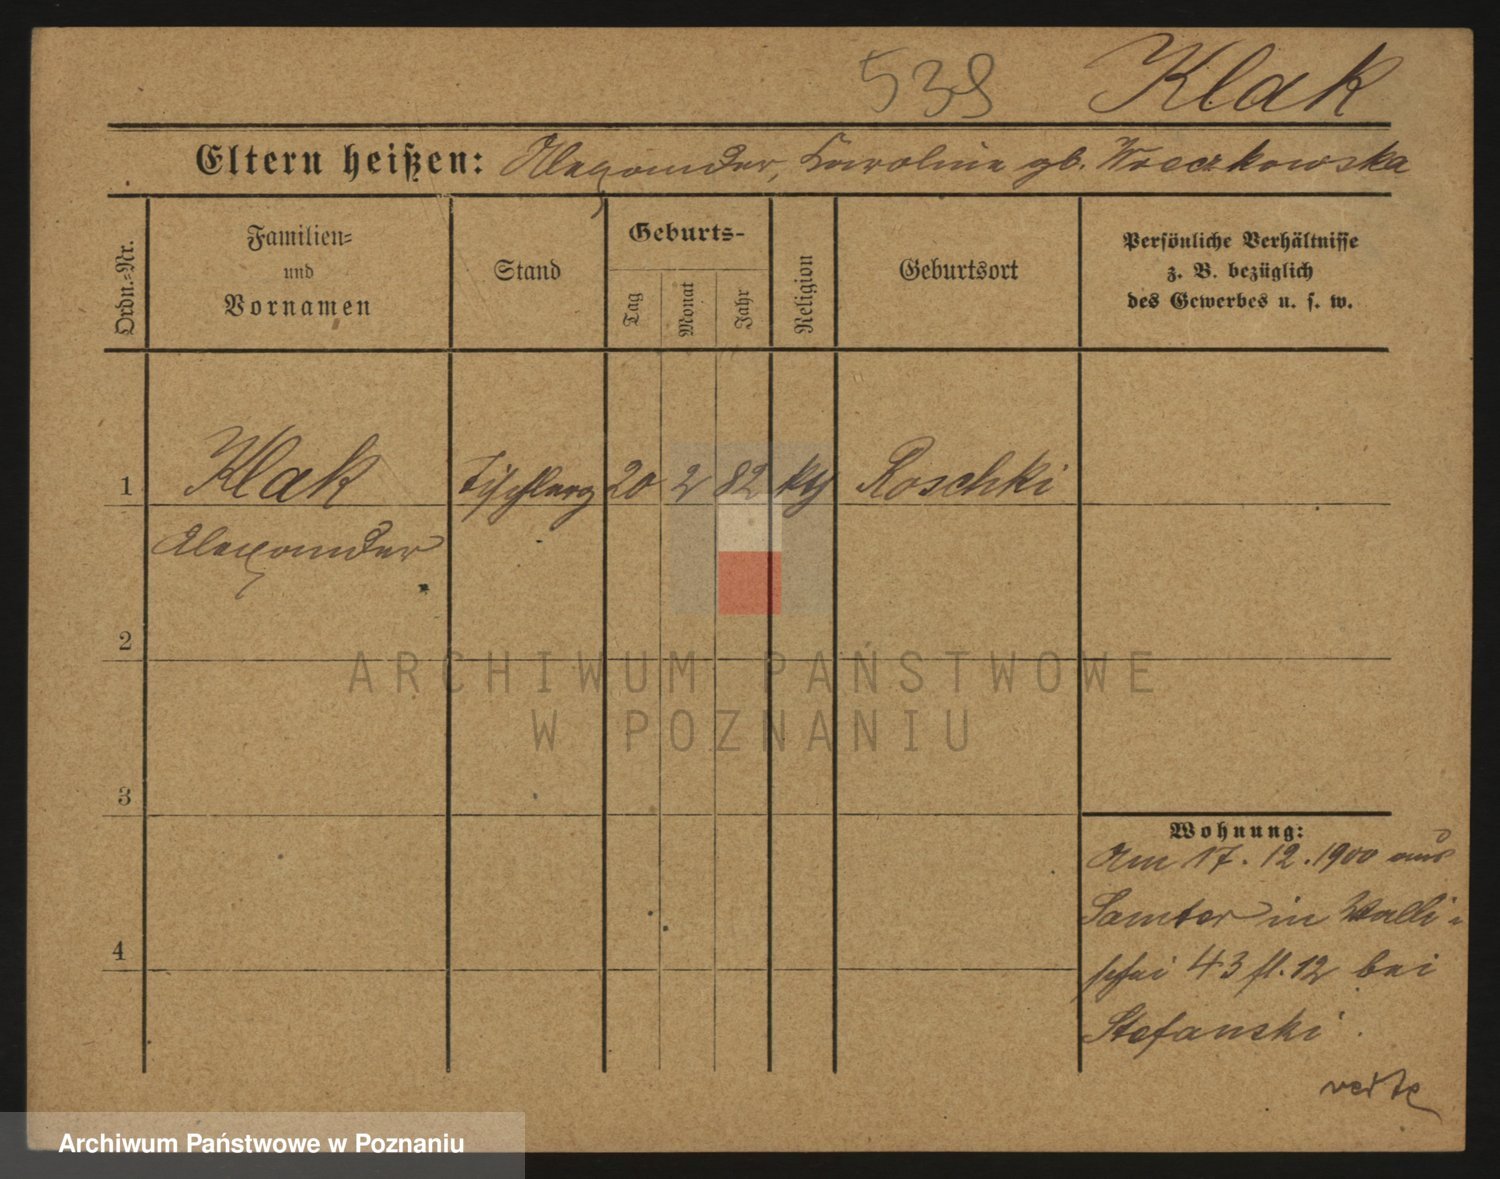 538 Klak
Eltern heißen: Alexander, Karoline gb. Woczkowska
Ordn.-Nr.
Familien-
und
Vornamen
Stand
Geburts-
Tag
Monat
Jahr
Religion
Geburtsort
Persönliche Verhältnisse
z. B. bezüglich
des Gewerbes u. s. w.
1 Klak Tischlerg 20 2 82 kth Roschki
Alexander
2
3
4
Wohnung:
Am 17. 12. 1900 aus
Samter in Walli-
schei 43 fl. 12 bei
Stefanski.
verte
ARCHIWUM PAŃSTWOWE
W POZNANIU
Archiwum Państwowe w Poznaniu